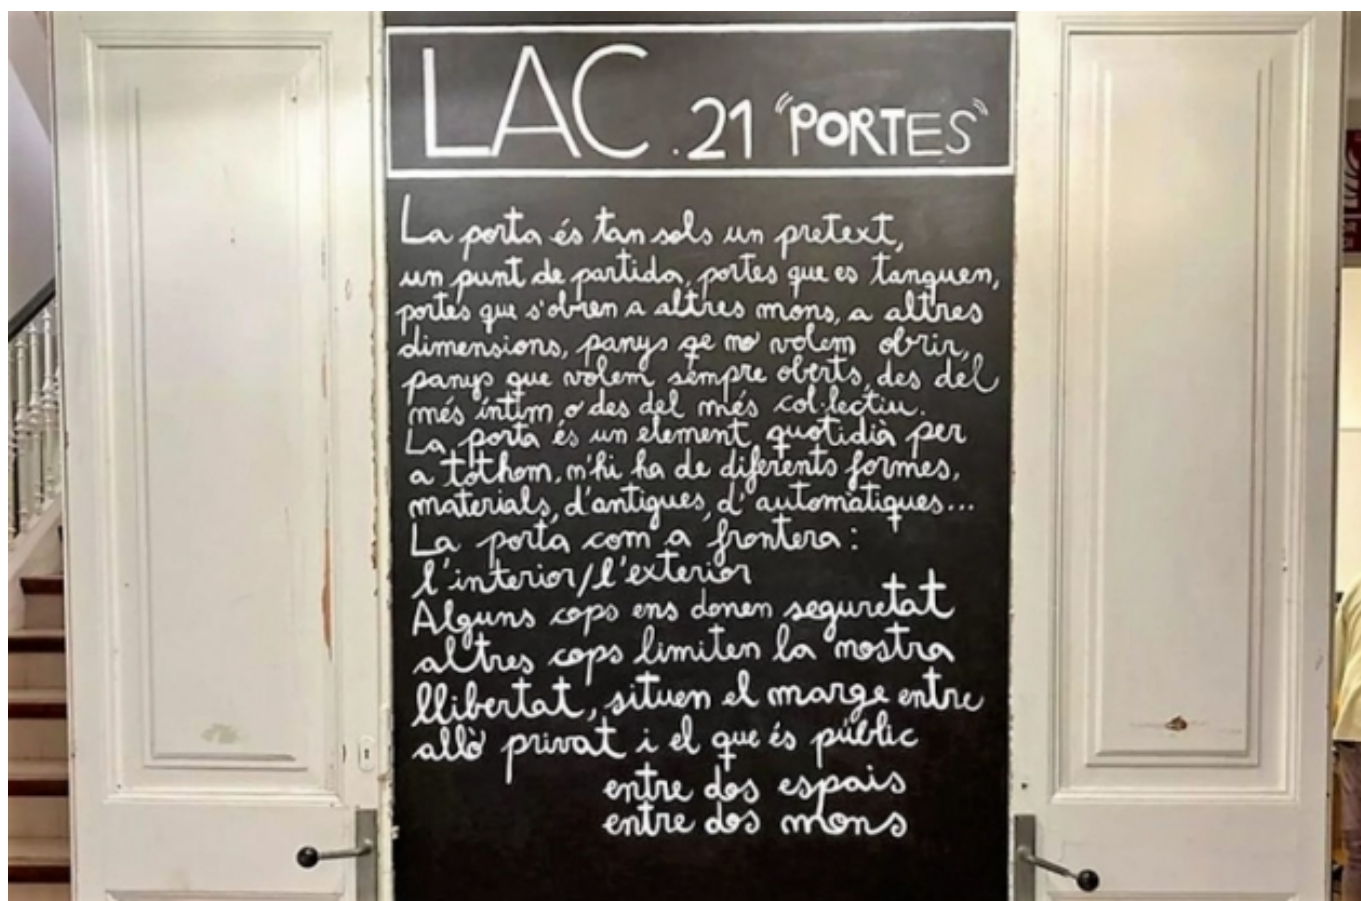 LAC .21 "PORTES"
La porta és tan sols un pretext,
un punt de partida, portes que es tanquen,
portes que s'obren a altres mons, a altres
dimensions, panys qe no volem obrir,
panys que volem sempre oberts, des del
més íntim o des del més col·lectiu.
La porta és un element quotidià per
a tothom, n'hi ha de diferents formes,
materials, d'antigues, d'automàtiques...
La porta com a frontera:
l'interior/l'exterior
Alguns cops ens donen seguretat
altres cops limiten la nostra
llibertat, situen el marge entre
allò privat i el que és públic
entre dos espais
entre dos mons